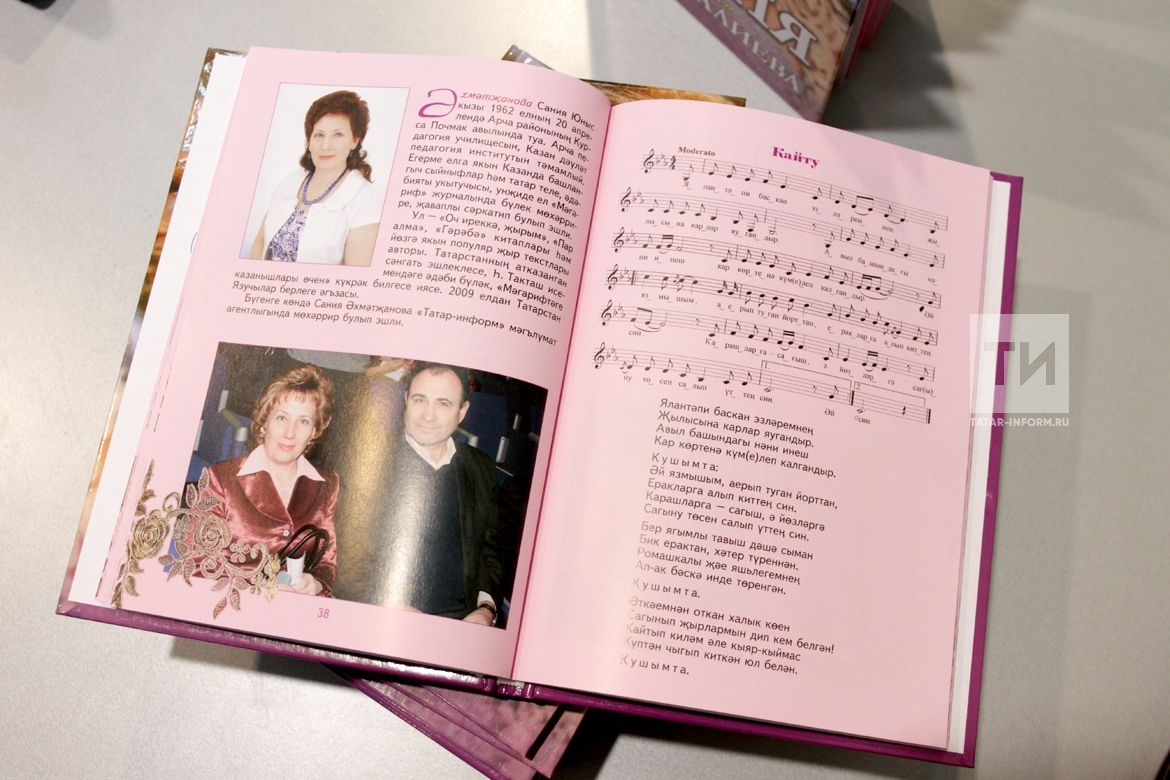 Әхмәтҗанова Сания Юныс
кызы 1962 елның 20 апре-
лендә Арча районының Кур-
са Почмак авылында туа. Арча пе-
дагогия училищесын, Казан дәүләт
педагогия институтын тәмамлый.
Егерме елга якын Казанда башлан-
гыч сыйныфлар һәм татар теле, әдә-
бияты укытучысы, унҗиде ел «Мәга-
риф» журналында бүлек мөхәрри-
ре, җаваплы сәркатип булып эшли.
Ул — «Оч ирек­кә, җырым», «Пар
алма», «Гәрәбә» китаплары һәм
йөзгә якын популяр җыр текстлары
авторы. Татарстанның атказанган
сәнгать эшлеклесе, Һ. Такташ исе-
мендәге әдәби бүләк, «Мәгарифтәге
казанышлары өчен» күкрәк билгесе иясе. 2009 елдан Татарстан
Язучылар берлеге әгъзасы.
Бүгенге көндә Сания Әхмәтҗанова «Татар-информ» мәгълүмат
агентлыгында мөхәррир булып эшли.
38
Кайту
Moderato
Я_ лан_ тә_ пи бас_ кан эз_ лә_ рем_ нең жы_
лы_ сы_ на кар_лар яу_ ган_ дыр. А_ выл ба_ шын_да_гы нә_
ни и_ неш кар көр_ те_ нә күм(е)_леп кал_ган_дыр. Әй
яз_ мы_шым, а_ е_рып ту_ган йорт_тан, е_ рак_лар_га а_лып кит_тең
син. Ка_ раш_лар_га – са_гыш, ә йөз_ ләр_ гә саг(ы)_
ну тө_ сен са_лып үт_ тең син. Әй син.
Ялантәпи баскан эзләремнең
Җылысына карлар яугандыр.
Авыл башындагы нәни инеш
Кар көртенә күм(е)леп калгандыр.
Кушымта:
Әй язмышым, аерып туган йорттан,
Еракларга алып киттең син.
Карашларга — сагыш, ә йөзләргә
Сагыну төсен салып үттең син.
Бер ягымлы тавыш дәшә сыман
Бик ерактан, хәтер түреннән.
Ромашкалы җәе яшьлегемнең
Ап-ак бәскә инде төренгән.
Кушымта.
Әткәемнән откан халык көен
Сагынып җырлармын дип кем белгән!
Кайтып киләм әле кыяр-кыймас
Күптән чыгып киткән юл белән.
Кушымта.
ТИ
TATAR-INFORM.RU